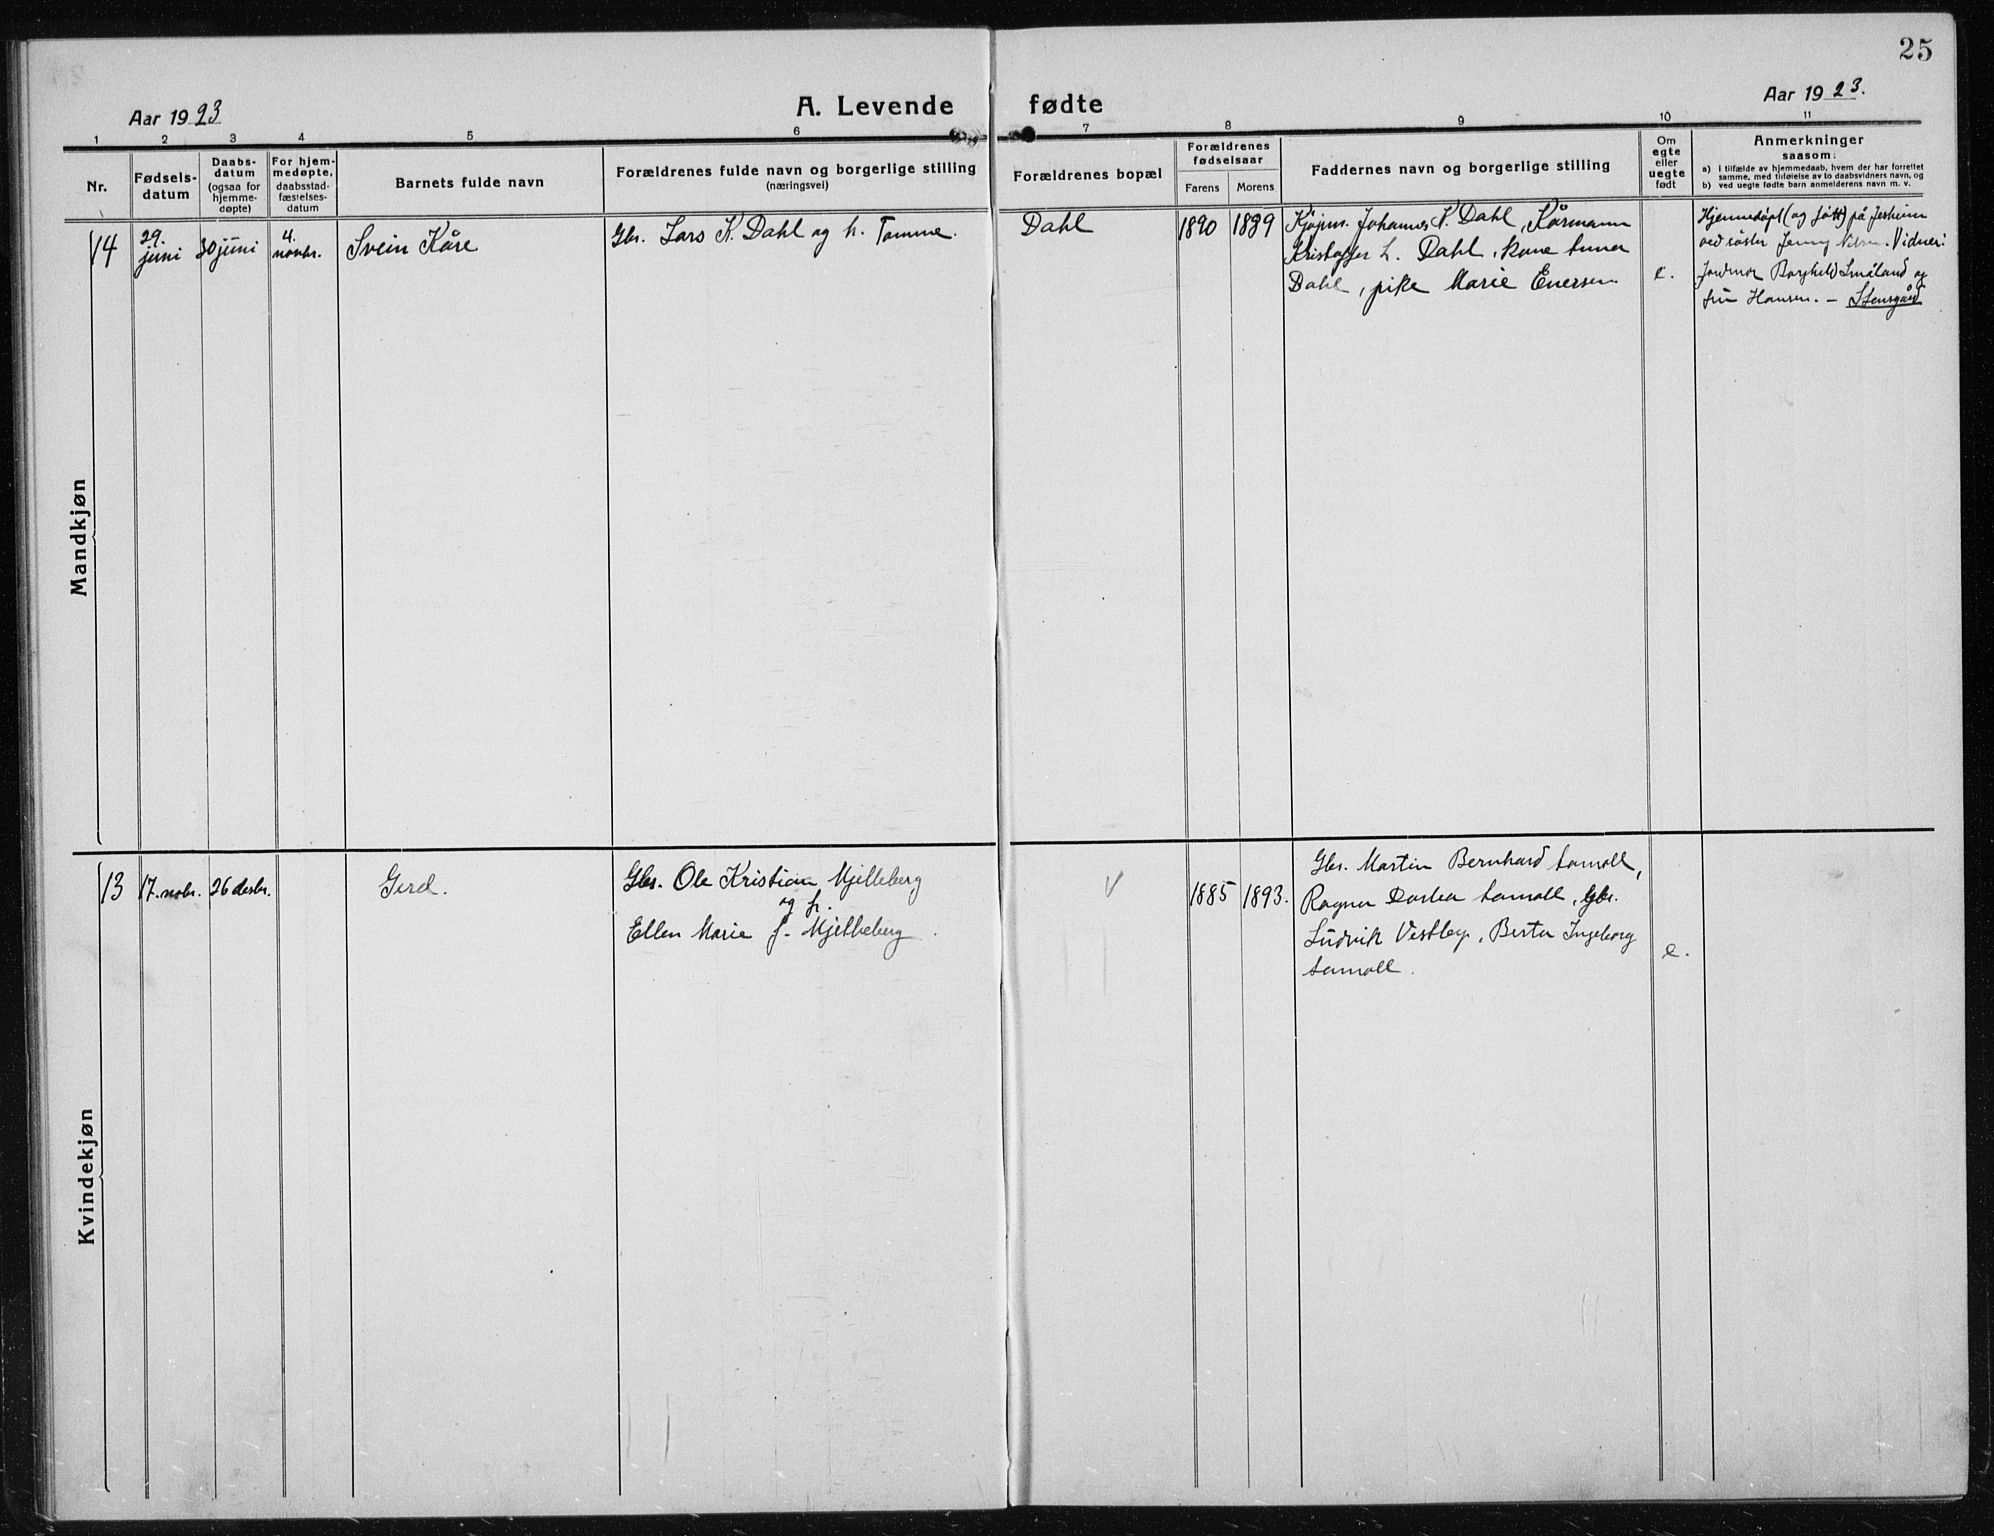 25
Aar 1923
A. Levende fødte
Aar 1923.
1 2 3 4 5 6 7 8 9 10 11
Nr.
Fødsels-
datum
Daabs-
datum
(ogsaa for
hjemme-
døpte)
For hjem-
medøpte,
daabsstad-
fæstelses-
datum
Barnets fulde navn
Forældrenes fulde navn og borgerlige stilling
(næringsvei)
Forældrenes bopæl
Forældrenes
fødselsaar
Farens Morens
Faddernes navn og borgerlige stilling
Om
egte
eller
uegte
født
Anmerkninger
saasom:
a) I tilfælde av hjemmedaab, hvem der har forrettet
samme, med tilføielse av to daabsvidners navn, og
b) ved uegte fødte barn anmelderens navn m. v.
Mandkjøn
14
29.
juni
30 juni
4.
novbr.
Svein Kåre
Gbr. Lars K. Dahl og h. Tomme.
Dahl
1890 1889
Kjøpm. Johannes K. Dahl, Kårmann
Kristoffer L. Dahl, kone Anna
Dahl, pike Marie Enersen
e.
Hjemmedøpt (og født) på Jesheim
ved søster Jenny Nilsen. Vidner:
Jordmor Borghild Småland og
fru Hansen. – Stensgård
Kvindekjøn
13
17. nobr.
26 desbr.
Gerd.
Gbr. Ole Kristian Mjelleberg
og h.
Ellen Marie f. Mjelleberg
1885 1893.
Gbr. Martin Bernhard
Ragna, Gbr.
Ludvik Vestby, Berta Ingeborg
e.